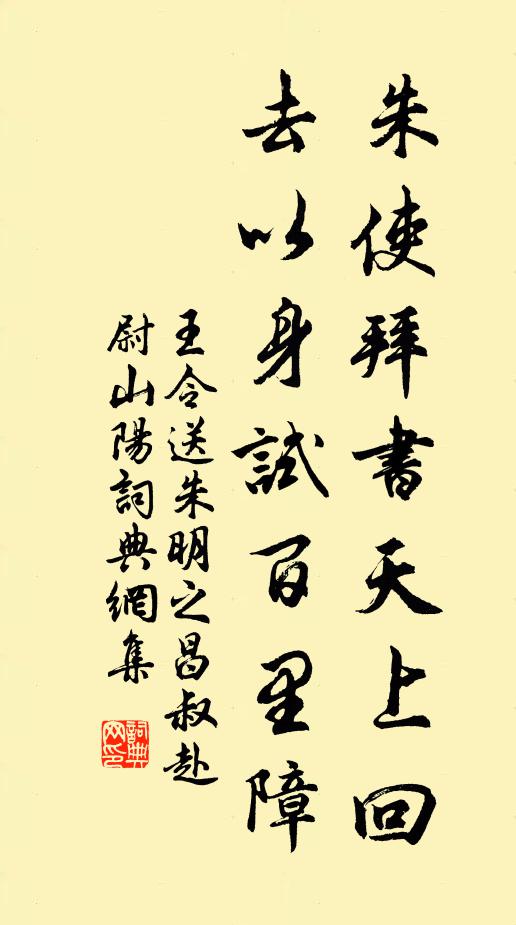 朱使拜書天上回
去以身試百里障
王令送朱明之昌叔赴
尉山陽詞典網集
詞典
网印